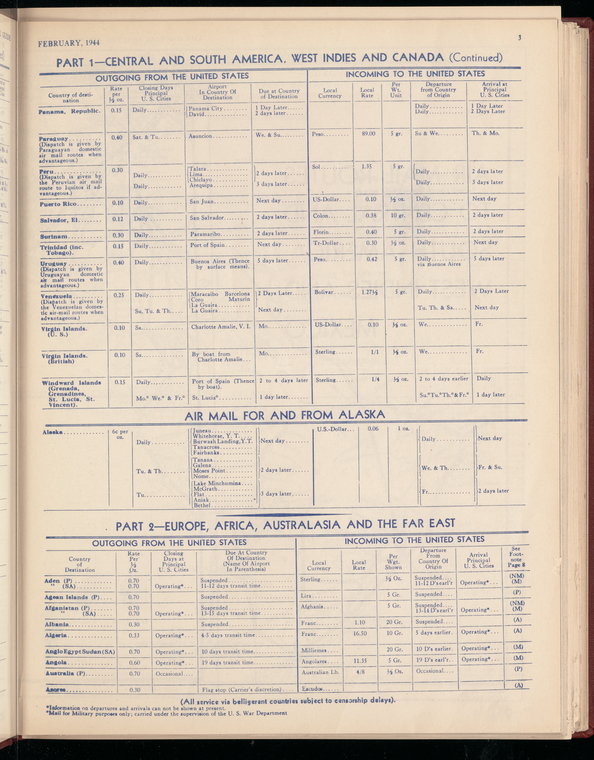 FEBRUARY, 1944
3
PART 1—CENTRAL AND SOUTH AMERICA, WEST INDIES AND CANADA (Continued)
OUTGOING FROM THE UNITED STATES
INCOMING TO THE UNITED STATES
Country of desti-nation | Rate per ½ oz. | Closing Days Principal U. S. Cities | Airport In Country Of Destination | Due at Country of Destination | Local Currency | Local Rate | Per Wt. Unit | Departure from Country of Origin | Arrival at Principal U. S. Cities
Panama, Republic. 0.15 Daily Panama City 1 Day Later Daily 1 Day Later
David 2 days later Daily 2 Days Later
Paraguay 0.40 Sat. & Tu. Asuncion We. & Su. Peso 89.00 5 gr. Su & We. Th. & Mo.
(Dispatch is given by
Paraguayan domestic
air mail routes when
advantageous.)
Peru 0.30 Talara Sol 1.35 5 gr.
(Dispatch is given by Daily Lima 2 days later Daily 2 days later
the Peruvian air mail Chiclayo
route to Iquitos if ad- Daily Arequipa 3 days later Daily 3 days later
vantageous.)
Puerto Rico 0.10 Daily San Juan Next day US-Dollar 0.10 ½ oz. Daily Next day
Salvador, El. 0.12 Daily San Salvador 2 days later Colon 0.38 10 gr. Daily 2 days later
Surinam 0.30 Daily Paramaribo 2 days later Florin 0.40 5 gr. Daily 2 days later
Trinidad (inc. 0.15 Daily Port of Spain Next day Tr-Dollar 0.30 ½ oz. Daily Next day
Tobago).
Uruguay 0.40 Daily Buenos Aires (Thence 5 days later Peso 0.42 5 gr. Daily 5 days later
(Dispatch is given by by surface means). via Buenos Aires
Uruguayan domestic
air mail routes when
advantageous.)
Venezuela 0.25 Daily Maracaibo Barcelona 2 Days Later Bolivar 1 27½ 5 gr. Daily 2 Days Later
(Dispatch is given by Coro Maturin
the Venezuelan domes- La Guaira
tic air-mail routes when Su. Tu. & Th. La Guaira Next day Tu. Th. & Sa. Next day
advantageous.)
Virgin Islands. 0.10 Sa. Charlotte Amalie, V. I. Mo. US-Dollar 0.10 ½ oz. We. Fr.
(U. S.)
Virgin Islands. 0.10 Sa. By boat from Mo. Sterling 1/1 ½ oz. We. Fr.
(British) Charlotte Amalie
Windward Islands 0.15 Daily Port of Spain (Thence 2 to 4 days later Sterling 1/4 ½ oz. 2 to 4 days earlier Daily
(Grenada, by boat).
Grenadines, Mo.* We.* & Fr.* St. Lucia* 1 day later Su.*Tu.*Th.*&Fr.* 1 day later
St. Lucia, St.
Vincent).
AIR MAIL FOR AND FROM ALASKA
Alaska 6c per oz. Juneau U.S.-Dollar 0.06 1 oz.
Whitehorse, Y. T.
Daily Burwash Landing, Y.T. Next day Daily Next day
Tanacross
Fairbanks
Tanana
Galena
Tu. & Th. Moses Point 2 days later We. & Th. Fr. & Su.
Nome
Lake Minchumina
McGrath
Tu. Flat 3 days later Fr. 2 days later
Aniak
Bethel
PART 2—EUROPE, AFRICA, AUSTRALASIA AND THE FAR EAST
OUTGOING FROM THE UNITED STATES
INCOMING TO THE UNITED STATES
Country of Destination | Rate Per ½ Oz. | Closing Days at Principal U. S. Cities | Due At Country Of Destination (Name Of Airport In Parenthesis) | Local Currency | Local Rate | Per Wgt. Shown | Departure From Country Of Origin | Arrival Principal U. S. Cities | See Foot-note Page 8
Aden (P) 0.70 Suspended Sterling ½ Oz. Suspended (NM)
" (SA) 0.70 Operating* 11-12 days transit time 11-12 D'searl'r Operating* (M)
Agean Islands (P) 0.70 Suspended Lira 5 Gr. Suspended (P)
Afganistan (P) 0.70 Suspended Afghania 5 Gr. Suspended (NM)
" (SA) 0.70 Operating* 13-15 days transit time 13-14 D'searl'r Operating* (M)
Albania 0.30 Suspended Franc 1.10 20 Gr. Suspended (A)
Algeria Operating* 4-5 days transit time Franc 16.50 10 Gr. 5 days earlier Operating* (A)
Anglo Egypt Sudan (SA) 0.70 Operating* 10 days transit time Milliemes 20 Gr. 10 D's earlier Operating* (M)
Angola 0.60 Operating* 19 days transit time Angulares 11.35 5 Gr. 19 D's earl'r Operating* (M)
Australia (P) 0.70 Occasional Australian Lb. 4/8 ½ Oz. Occasional (P)
Azores 0.30 Flag stop (Carrier's discretion) Escudos (A)
(All service via belligerent countries subject to censorship delays).
*Information on departures and arrivals can not be shown at present.
*Mail for Military purposes only; carried under the supervision of the U. S. War Department